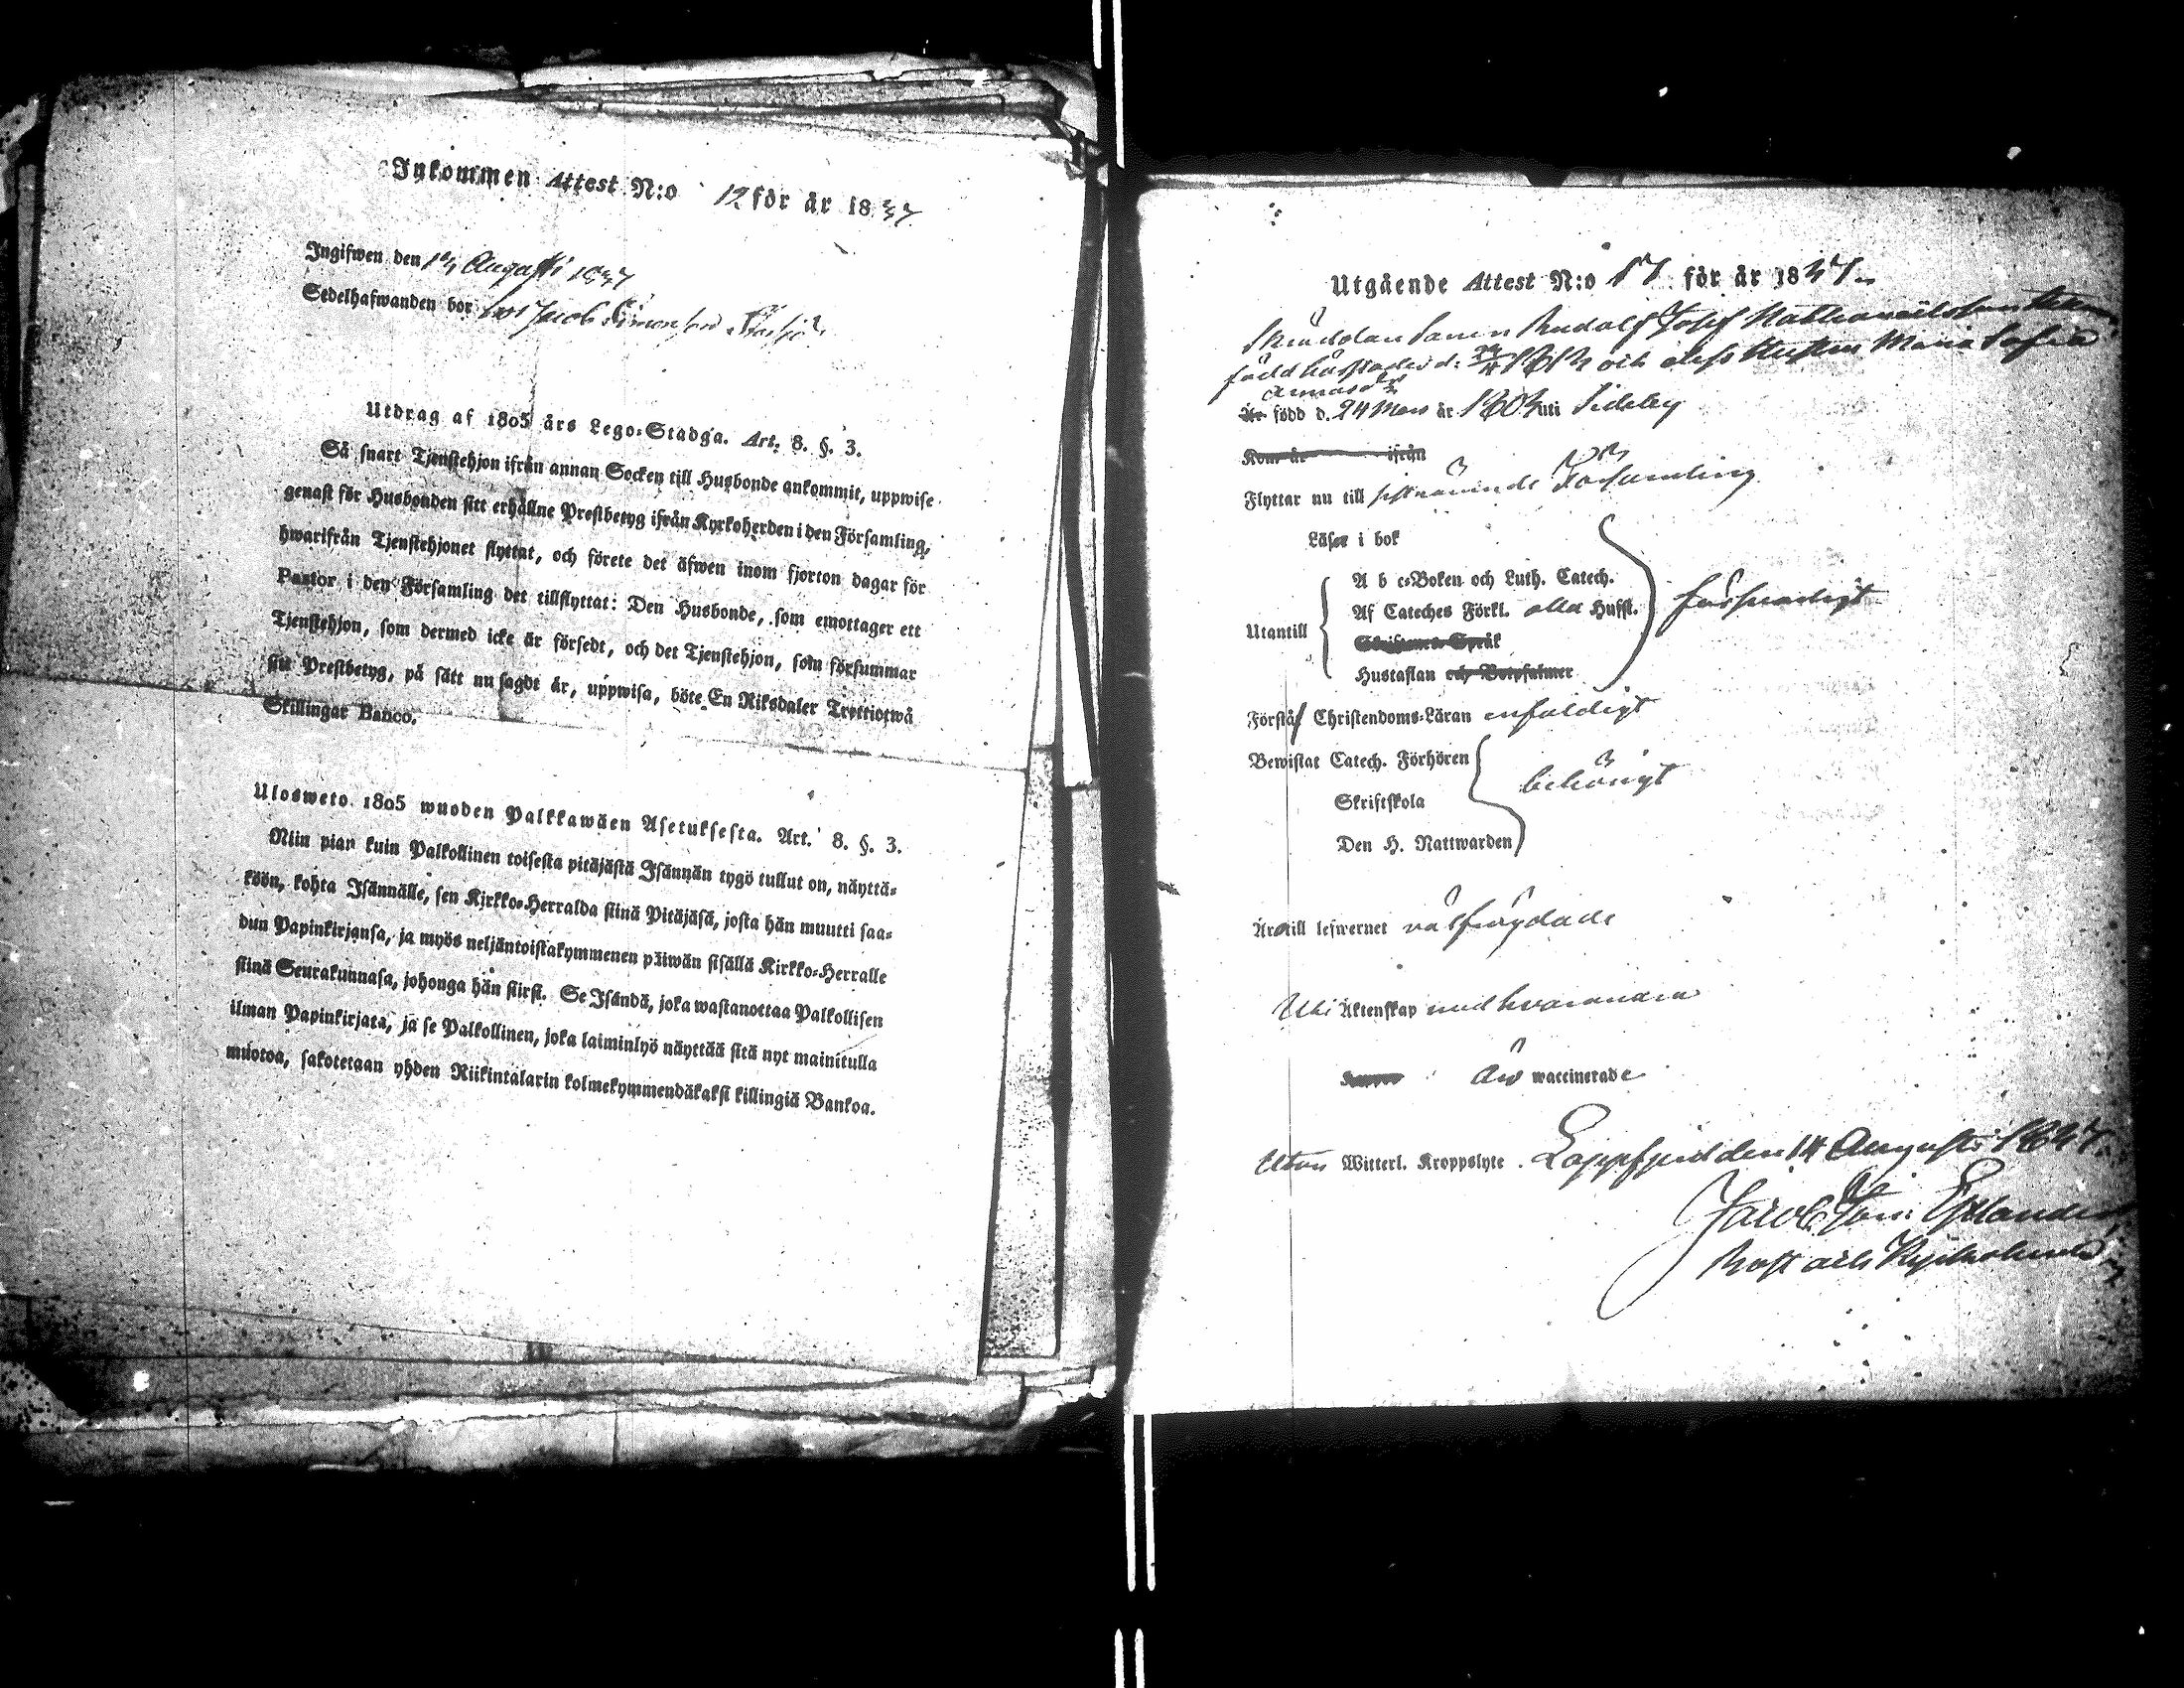 Inkommen Attest N:o 12 för år 1837.
Ingifwen den 14 Augusti 1837
Sedelhafwanden bor hos Jacob Simonsson
Utdrag af 1805 års Lego-Stadga. Art. 8. §. 3.
Så snart Tjenstehjon ifrån annan Socken till Husbonde ankommit, uppwise
genast för Husbonden sitt erhållne Prestbetyg ifrån Kyrkoherden i den Församling,
hwarifrån Tjenstehjonet flyttat, och förete det äfwen inom fjorton dagar för
Pastor i den Församling det tillflyttat: Den Husbonde, som emottager ett
Tjenstehjon, som dermed icke är försedt, och det Tjenstehjon, som försummar
sitt Prestbetyg, på sätt nu sagdt är, uppwisa, böte En Riksdaler Trettiotwå
Skillingar Banco.
Ulosweto 1805 wuoden Palkkawäen Asetuksesta. Art. 8. §. 3.
Niin pian kuin Palkollinen toisesta pitäjästä Isännän tygö tullut on, näyttä-
köön, kohta Isännälle, sen Kirkko-Herralda siinä Pitäjäsä, josta hän muutti saa-
dun Papinkirjansa, ja myös neljäntoistakymmenen päiwän sisällä Kirkko-Herralle
siinä Seurakunnasa, johonga hän siirsi. Se Isändä, joka wastanottaa Palkollisen
ilman Papinkirjata, ja se Palkollinen, joka laiminlyö näyttää sitä nyt mainitulla
muotoa, sakotetaan yhden Riikintalarin kolmekymmendäkaksi killingiä Bankoa.
Utgående Attest N:o 17 för år 1837.
Skräddaren Rudolf Josef Nathanaelsson
född d. och dess Hustru Maria Sofia
Annasdr
Är född d. 24 Mars år 1803 uti Sideby
Kom år ifrån
Flyttar nu till sistnämnde Församling
Läser i bok
A b c-Boken och Luth. Catech.
Af Cateches Förkl. alla Hufst. försvarligt
Utantill
Skriftenes Språk
Hustaflan och Botpsalmer
Förstå Christendoms-Läran enfaldigt
Bewistat Catech. Förhören
behörigt
Skriftskola
Den H. Nattwarden
Äro till lefwernet välfrägdade
Uti Äktenskap med hvarandra
Äro waccinerade
Utan Witterl. Kroppslyte. Lappfjerd den 14 Augusti 1837.
Jacob
Prost och Kyrkoherde